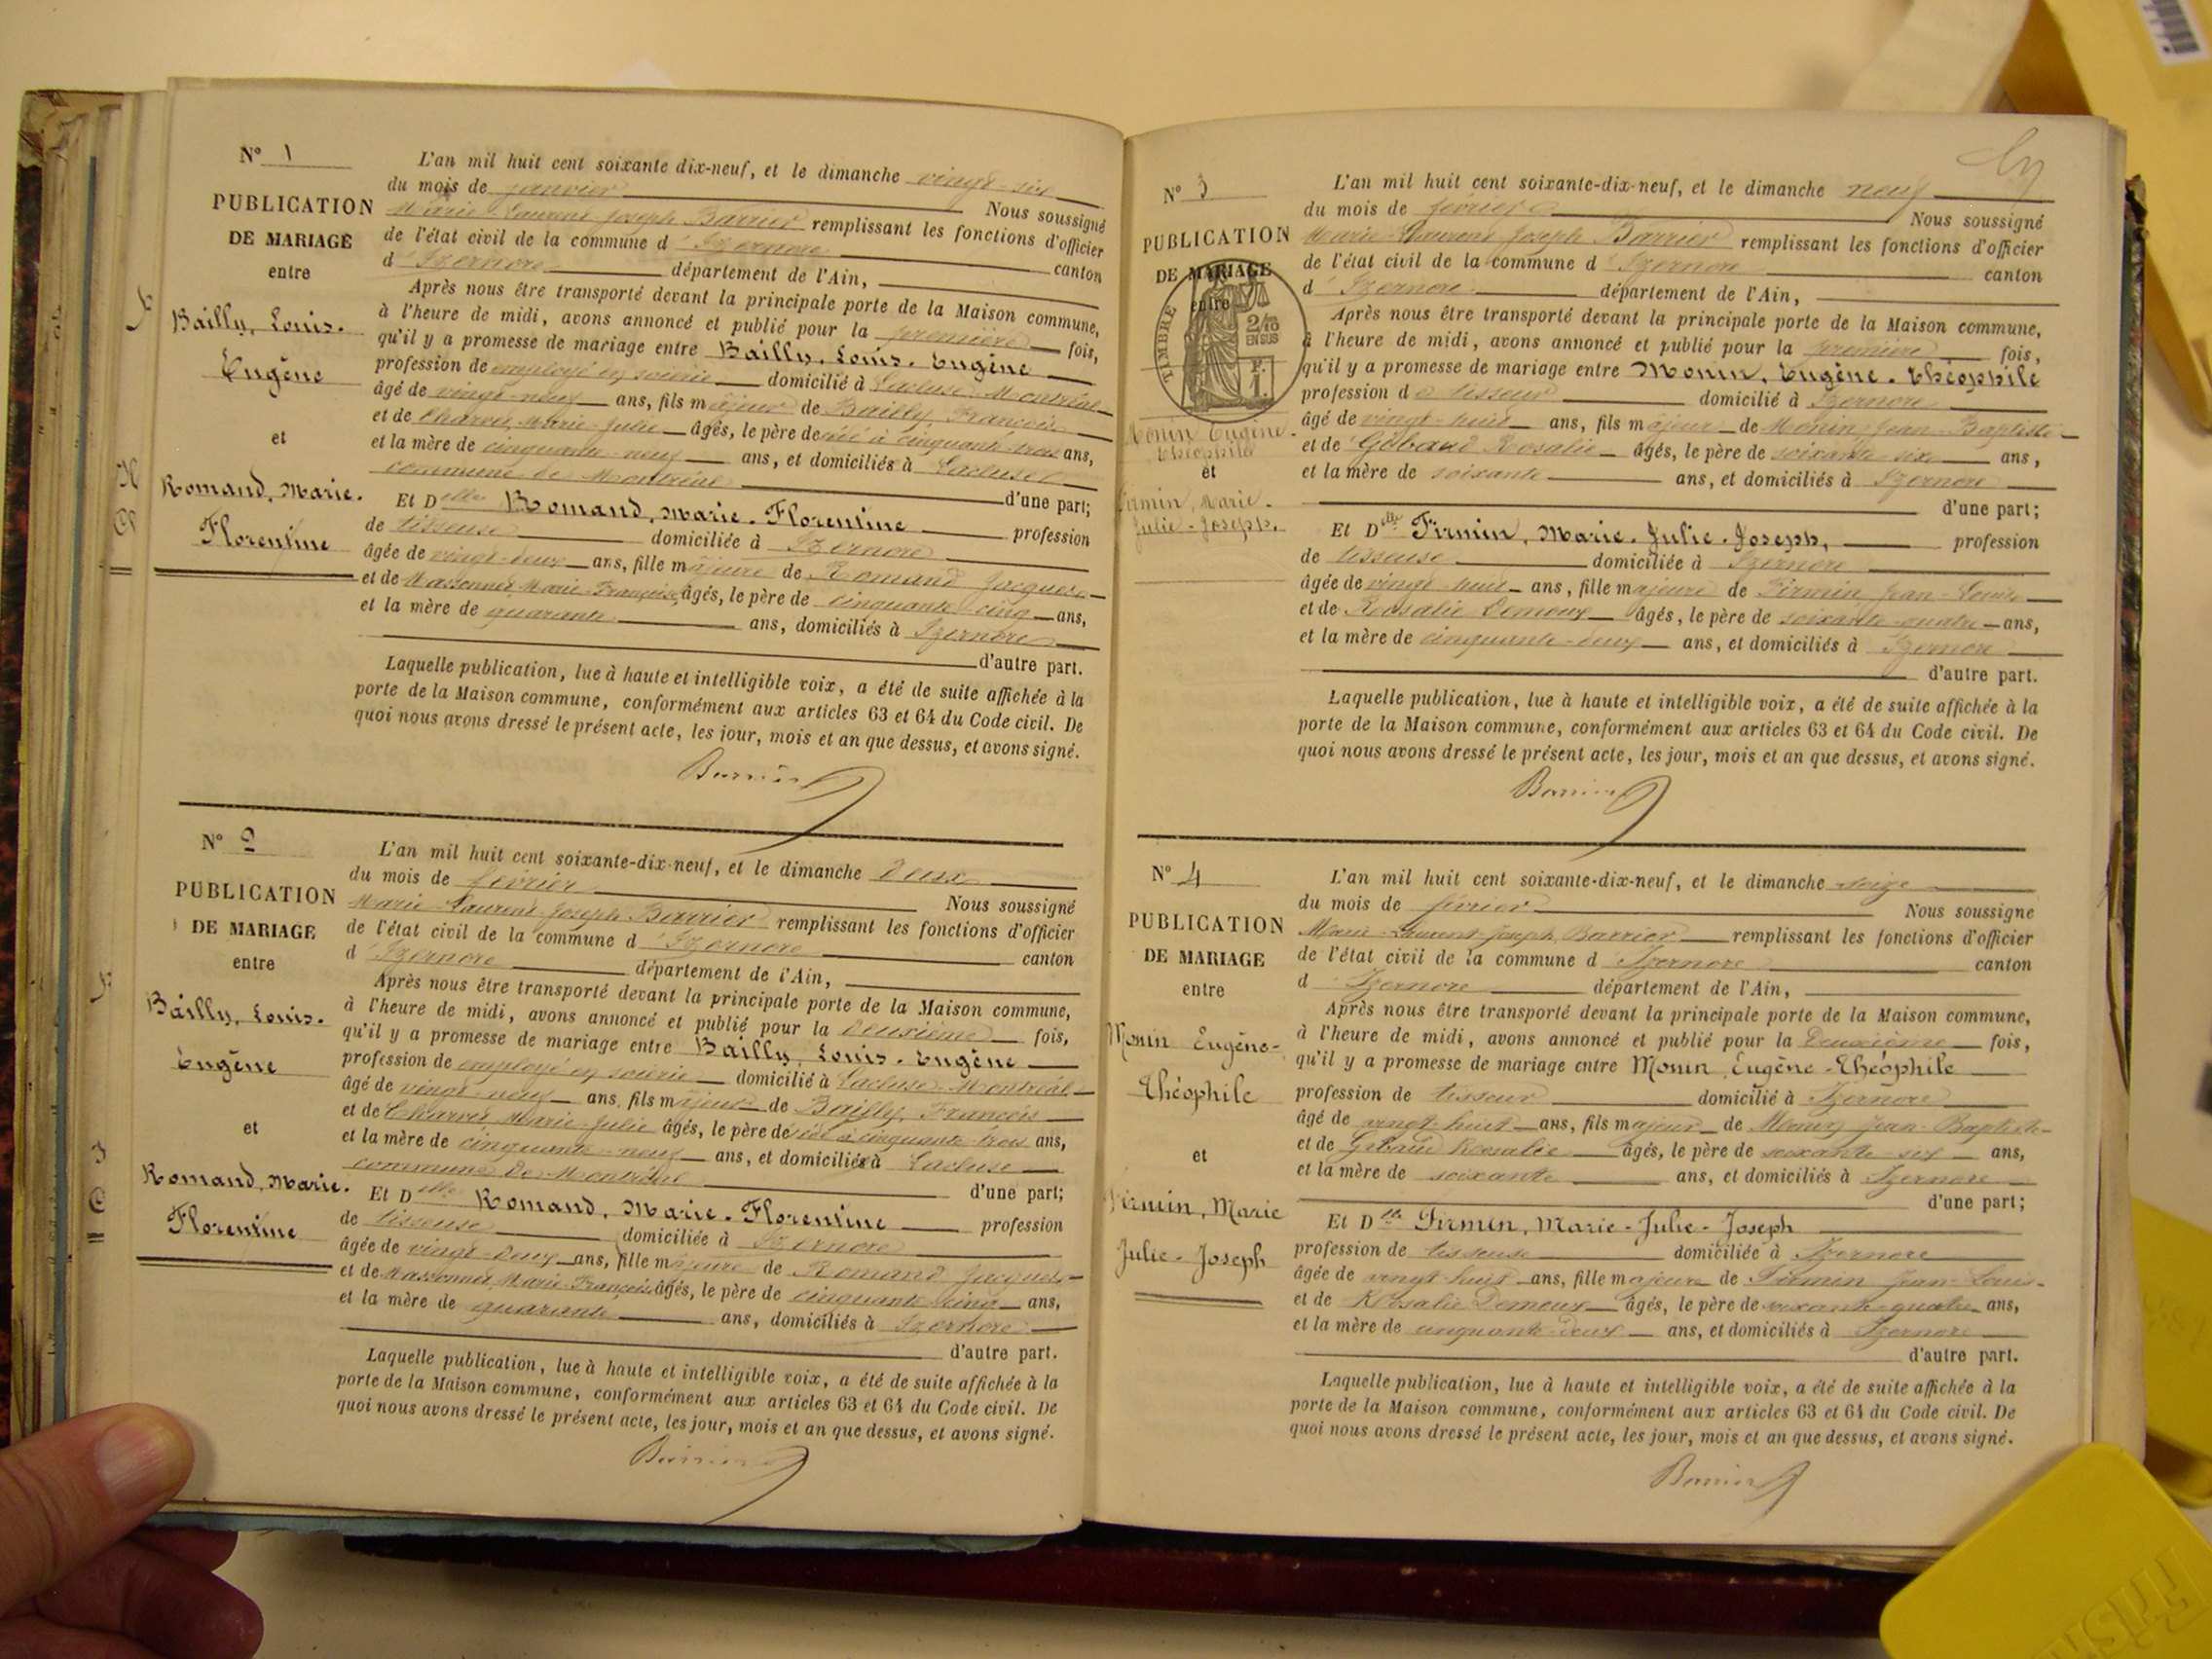 N° 1
PUBLICATION
DE MARIAGE
entre
Bailly, Louis.
Eugène
et
Romand, Marie.
Florentine
L'an mil huit cent soixante dix-neuf, et le dimanche vingt-six
du mois de janvier Nous soussigné
Marie-Laurent-Joseph Barrier remplissant les fonctions d'officier
de l'état civil de la commune d'Izernore canton
d'Izernore département de l'Ain,
Après nous être transporté devant la principale porte de la Maison commune,
à l'heure de midi, avons annoncé et publié pour la première fois,
qu'il y a promesse de mariage entre Bailly, Louis. Eugène
profession de employé en soierie domicilié à Lacluse. Montréal
âgé de vingt-neuf ans, fils majeur de Bailly, François
et de Charvet, Marie-Julie âgés, le père décédé à cinquante-trois ans,
et la mère de cinquante-neuf ans, et domiciliés à Lacluse
commune de Montréal d'une part;
Et Delle Romand, Marie. Florentine profession
de tisseuse domiciliée à Izernore
âgée de vingt-deux ans, fille majeure de Romand Jacques
et de Massonnet Marie-Françoise âgés, le père de cinquante-cinq ans,
et la mère de quarante ans, domiciliés à Izernore
d'autre part.
Laquelle publication, lue à haute et intelligible voix, a été de suite affichée à la
porte de la Maison commune, conformément aux articles 63 et 64 du Code civil. De
quoi nous avons dressé le présent acte, les jour, mois et an que dessus, et avons signé.
Barrier
N° 2
PUBLICATION
DE MARIAGE
entre
Bailly, Louis.
Eugène
et
Romand, Marie.
Florentine
L'an mil huit cent soixante-dix-neuf, et le dimanche deux
du mois de février Nous soussigné
Marie-Laurent-Joseph Barrier remplissant les fonctions d'officier
de l'état civil de la commune d'Izernore canton
d'Izernore département de l'Ain,
Après nous être transporté devant la principale porte de la Maison commune,
à l'heure de midi, avons annoncé et publié pour la deuxième fois,
qu'il y a promesse de mariage entre Bailly, Louis. Eugène
profession de employé en soierie domicilié à Lacluse. Montréal
âgé de vingt-neuf ans, fils majeur de Bailly, François
et de Charvet, Marie-Julie âgés, le père décédé à cinquante-trois ans,
et la mère de cinquante-neuf ans, et domiciliés à Lacluse
commune de Montréal d'une part;
Et Delle Romand, Marie. Florentine profession
de tisseuse domiciliée à Izernore
âgée de vingt-deux ans, fille majeure de Romand Jacques
et de Massonnet, Marie-Françoise âgés, le père de cinquante-cinq ans,
et la mère de quarante ans, domiciliés à Izernore
d'autre part.
Laquelle publication, lue à haute et intelligible voix, a été de suite affichée à la
porte de la Maison commune, conformément aux articles 63 et 64 du Code civil. De
quoi nous avons dressé le présent acte, les jour, mois et an que dessus, et avons signé.
Barrier
N° 3
PUBLICATION
DE MARIAGE
entre
TIMBRE
2/10
EN SUS
Monin Eugène-
Théophile
et
Firmin, Marie-
Julie-Joseph.
L'an mil huit cent soixante-dix-neuf, et le dimanche neuf
du mois de février Nous soussigné
Marie-Laurent-Joseph Barrier remplissant les fonctions d'officier
de l'état civil de la commune d'Izernore canton
d'Izernore département de l'Ain,
Après nous être transporté devant la principale porte de la Maison commune,
à l'heure de midi, avons annoncé et publié pour la première fois,
qu'il y a promesse de mariage entre Monin, Eugène. Théophile
profession de tisseur domicilié à Izernore
âgé de vingt-huit ans, fils majeur de Monin Jean-Baptiste
et de Gibaud Rosalie âgés, le père de soixante-six ans,
et la mère de soixante ans, et domiciliés à Izernore
d'une part;
Et Delle Firmin, Marie. Julie. Joseph, profession
de tisseuse domiciliée à Izernore
âgée de vingt-huit ans, fille majeure de Firmin Jean-Louis
et de Rosalie Demoux âgés, le père de soixante-quatre ans,
et la mère de cinquante-deux ans, et domiciliés à Izernore
d'autre part.
Laquelle publication, lue à haute et intelligible voix, a été de suite affichée à la
porte de la Maison commune, conformément aux articles 63 et 64 du Code civil. De
quoi nous avons dressé le présent acte, les jour, mois et an que dessus, et avons signé.
Barrier
N° 4
PUBLICATION
DE MARIAGE
entre
Monin Eugène-
Théophile
et
Firmin, Marie
Julie-Joseph
L'an mil huit cent soixante-dix-neuf, et le dimanche seize
du mois de février Nous soussigné
Marie-Laurent-Joseph Barrier remplissant les fonctions d'officier
de l'état civil de la commune d'Izernore canton
d'Izernore département de l'Ain,
Après nous être transporté devant la principale porte de la Maison commune,
à l'heure de midi, avons annoncé et publié pour la deuxième fois,
qu'il y a promesse de mariage entre Monin, Eugène-Théophile
profession de tisseur domicilié à Izernore
âgé de vingt-huit ans, fils majeur de Monin Jean-Baptiste
et de Gibaud Rosalie âgés, le père de soixante-six ans,
et la mère de soixante ans, et domiciliés à Izernore
d'une part;
Et Dlle Firmin, Marie-Julie-Joseph
profession de tisseuse domiciliée à Izernore
âgée de vingt-huit ans, fille majeure de Firmin Jean-Louis
et de Rosalie Demoux âgés, le père de soixante-quatre ans,
et la mère de cinquante-deux ans, et domiciliés à Izernore
d'autre part.
Laquelle publication, lue à haute et intelligible voix, a été de suite affichée à la
porte de la Maison commune, conformément aux articles 63 et 64 du Code civil. De
quoi nous avons dressé le présent acte, les jour, mois et an que dessus, et avons signé.
Barrier